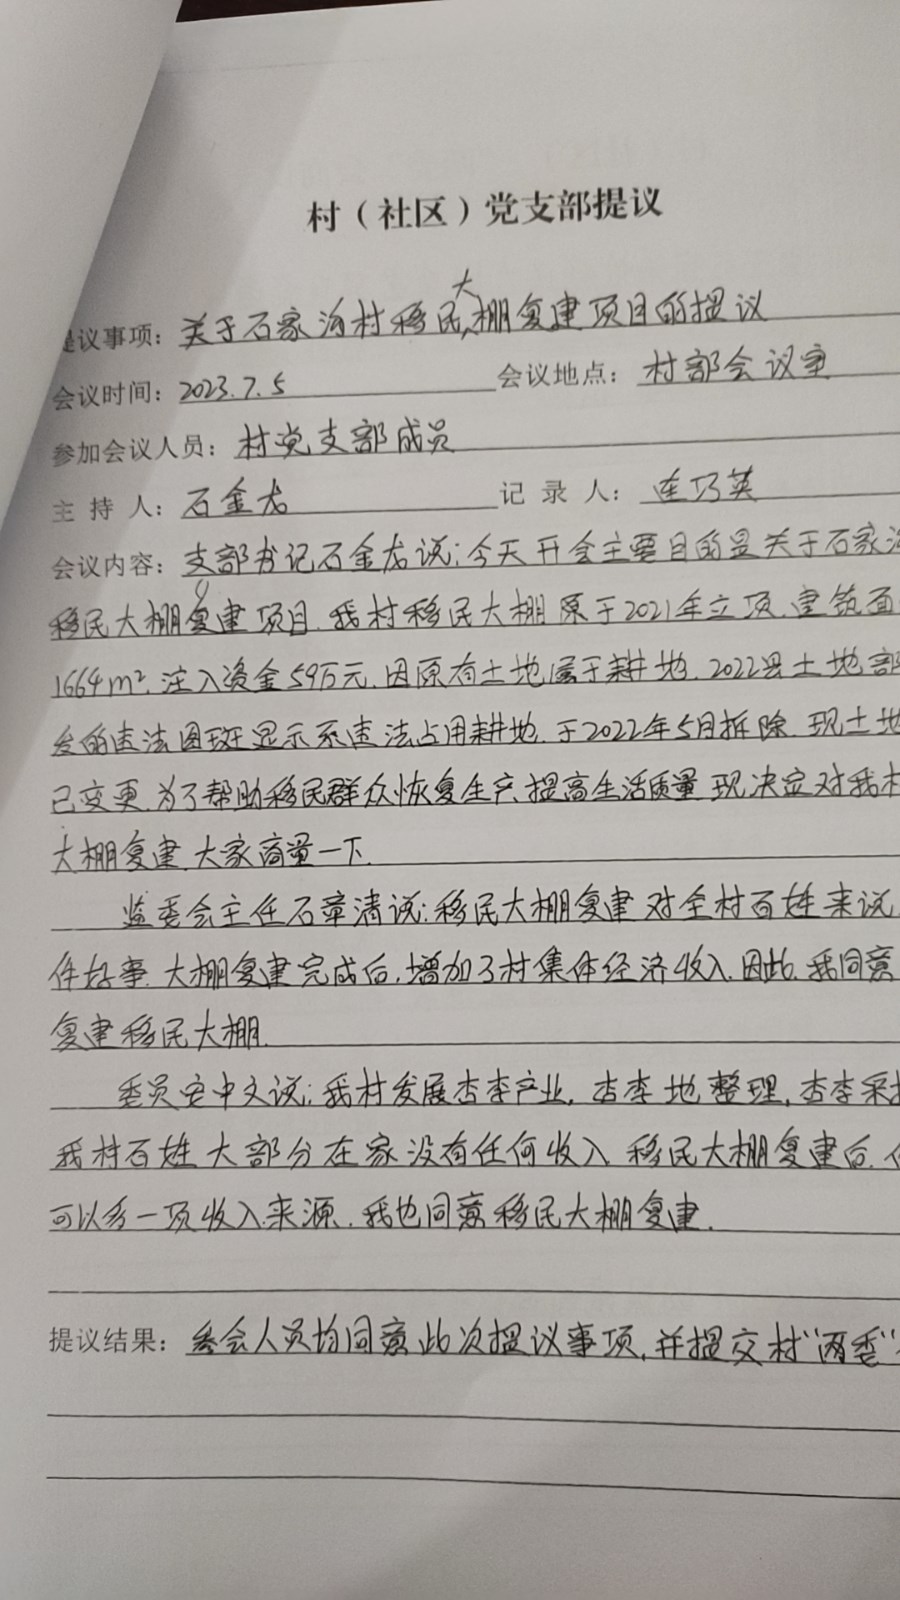 村（社区）党支部提议
提议事项：关于石家沟村移民大棚复建项目的提议
会议时间：2023.7.5 会议地点：村部会议室
参加会议人员：村党支部成员
主持人：石金龙 记录人：连巧英
会议内容：支部书记石金龙说：今天开会主要目的是关于石家沟
移民大棚复建项目.我村移民大棚原于2021年立项.建筑面
1664m².注入资金59万元.因原有土地属于耕地.2022县土地部
发的违法图斑显示系违法占用耕地.于2022年5月拆除.现土地
已变更.为了帮助移民群众恢复生产,提高生活质量.现决定对我村
大棚复建.大家商量一下.
监委会主任石章清说:移民大棚复建对全村百姓来说
件好事.大棚复建完成后,增加了村集体经济收入.因此.我同意
复建移民大棚.
委员安中文说:我村发展杏李产业,杏李地整理,杏李采摘
我村百姓大部分在家没有任何收入.移民大棚复建后.
可以多一项收入来源.我也同意移民大棚复建.
提议结果：参会人员均同意此次提议事项,并提交村"两委"